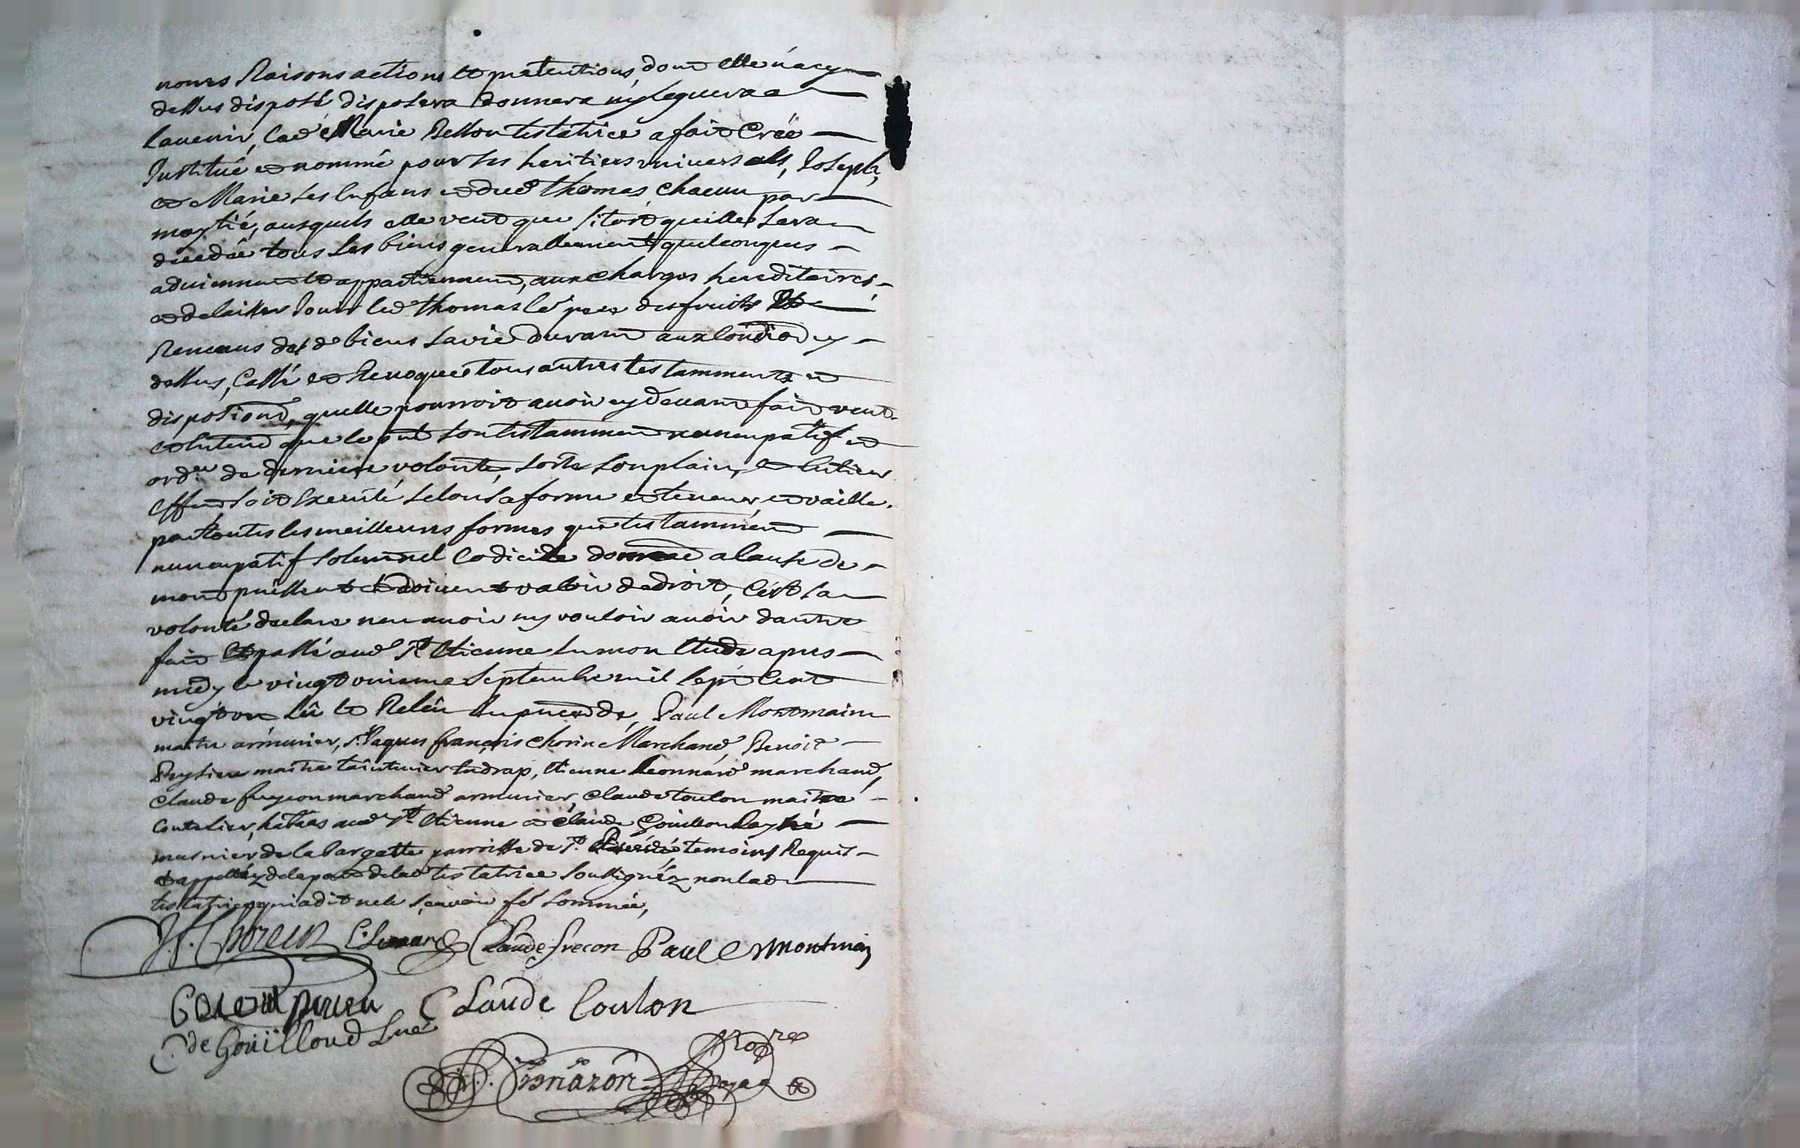 noms Raisons actions et pretentions, dont elle n'a cy
dessus disposé disposera donnera ny leguera a
lavenir, Lad.e Marie Bellon testatrice a fait Créé
Institué et nommé pour ses heritiers universels, Joseph,
et Marie ses enfans et dud Thomas, chacun par
moytié, ausquels elle veut que sitost quelle sera
decedée tous ses biens generallement quelconques
adviennent et appartiennent, aux charges hereditaires,
et de laisser Jouir led Thomas le pere des fruits et
Revenus desd biens sa vie durant aux condiõns cy
dessus, Cassé et Revoqué tous autres testamments et
dispositions, quelle pourroit avoir cy devant fait veut
et entend que le pnt son testamment nuncupatif et
ord.re de derniere volonté, sorte son plain, et entier
effet soit Executé selon sa forme et teneur et vaille
par toutes les meilleures formes que testamment
nuncupatif solemnel codicille donnaõn a cause de
mort puissent et doivent valoir de droit, C'est sa
volonté declare n'en avoir ny vouloir avoir d'autre
fait et passé aud St Etienne en mon Etude apres
midy le vingt unieme septembre mil sept cent
vingt un Lû et Relëu en presence de, Paul Montmain
maitre armurier, sr Jaques françois Chorin Marchand, Benoit
maitre tainturier en drap, Etienne Leonnard marchand,
Claude freycon marchand armurier, Claude Coulon maitre
Coutelier, habitans aud St Etienne et Claude Goüilloud
musnier de la parroisse de St temoins Requis
et appellez de la part de lad testatrice soussignéz non lad
testatrice qui a dit ne le sçavoir fe sommée,
J f. Chorein E. Lenard Claude frecon Paul Montmain
Claude Coulon
C. de Goüilloud